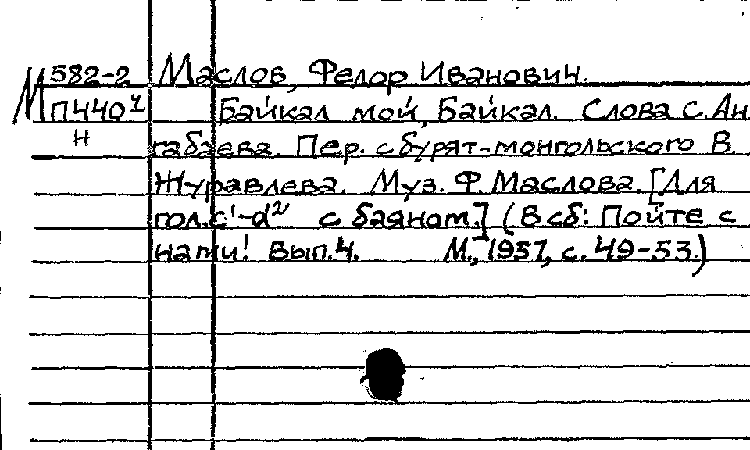 М 582-2 Маслов, Федор Иванович.
П440⁷ Байкал мой, Байкал. Слова С. Ан
Н габаева. Пер. с бурят-монгольского В.
Журавлева. Муз. Ф. Маслова. [Для
гол. c¹-d² с баяном.] (В сб: Пойте с
нами! Вып. 4. М., 1957, с. 49-53.)